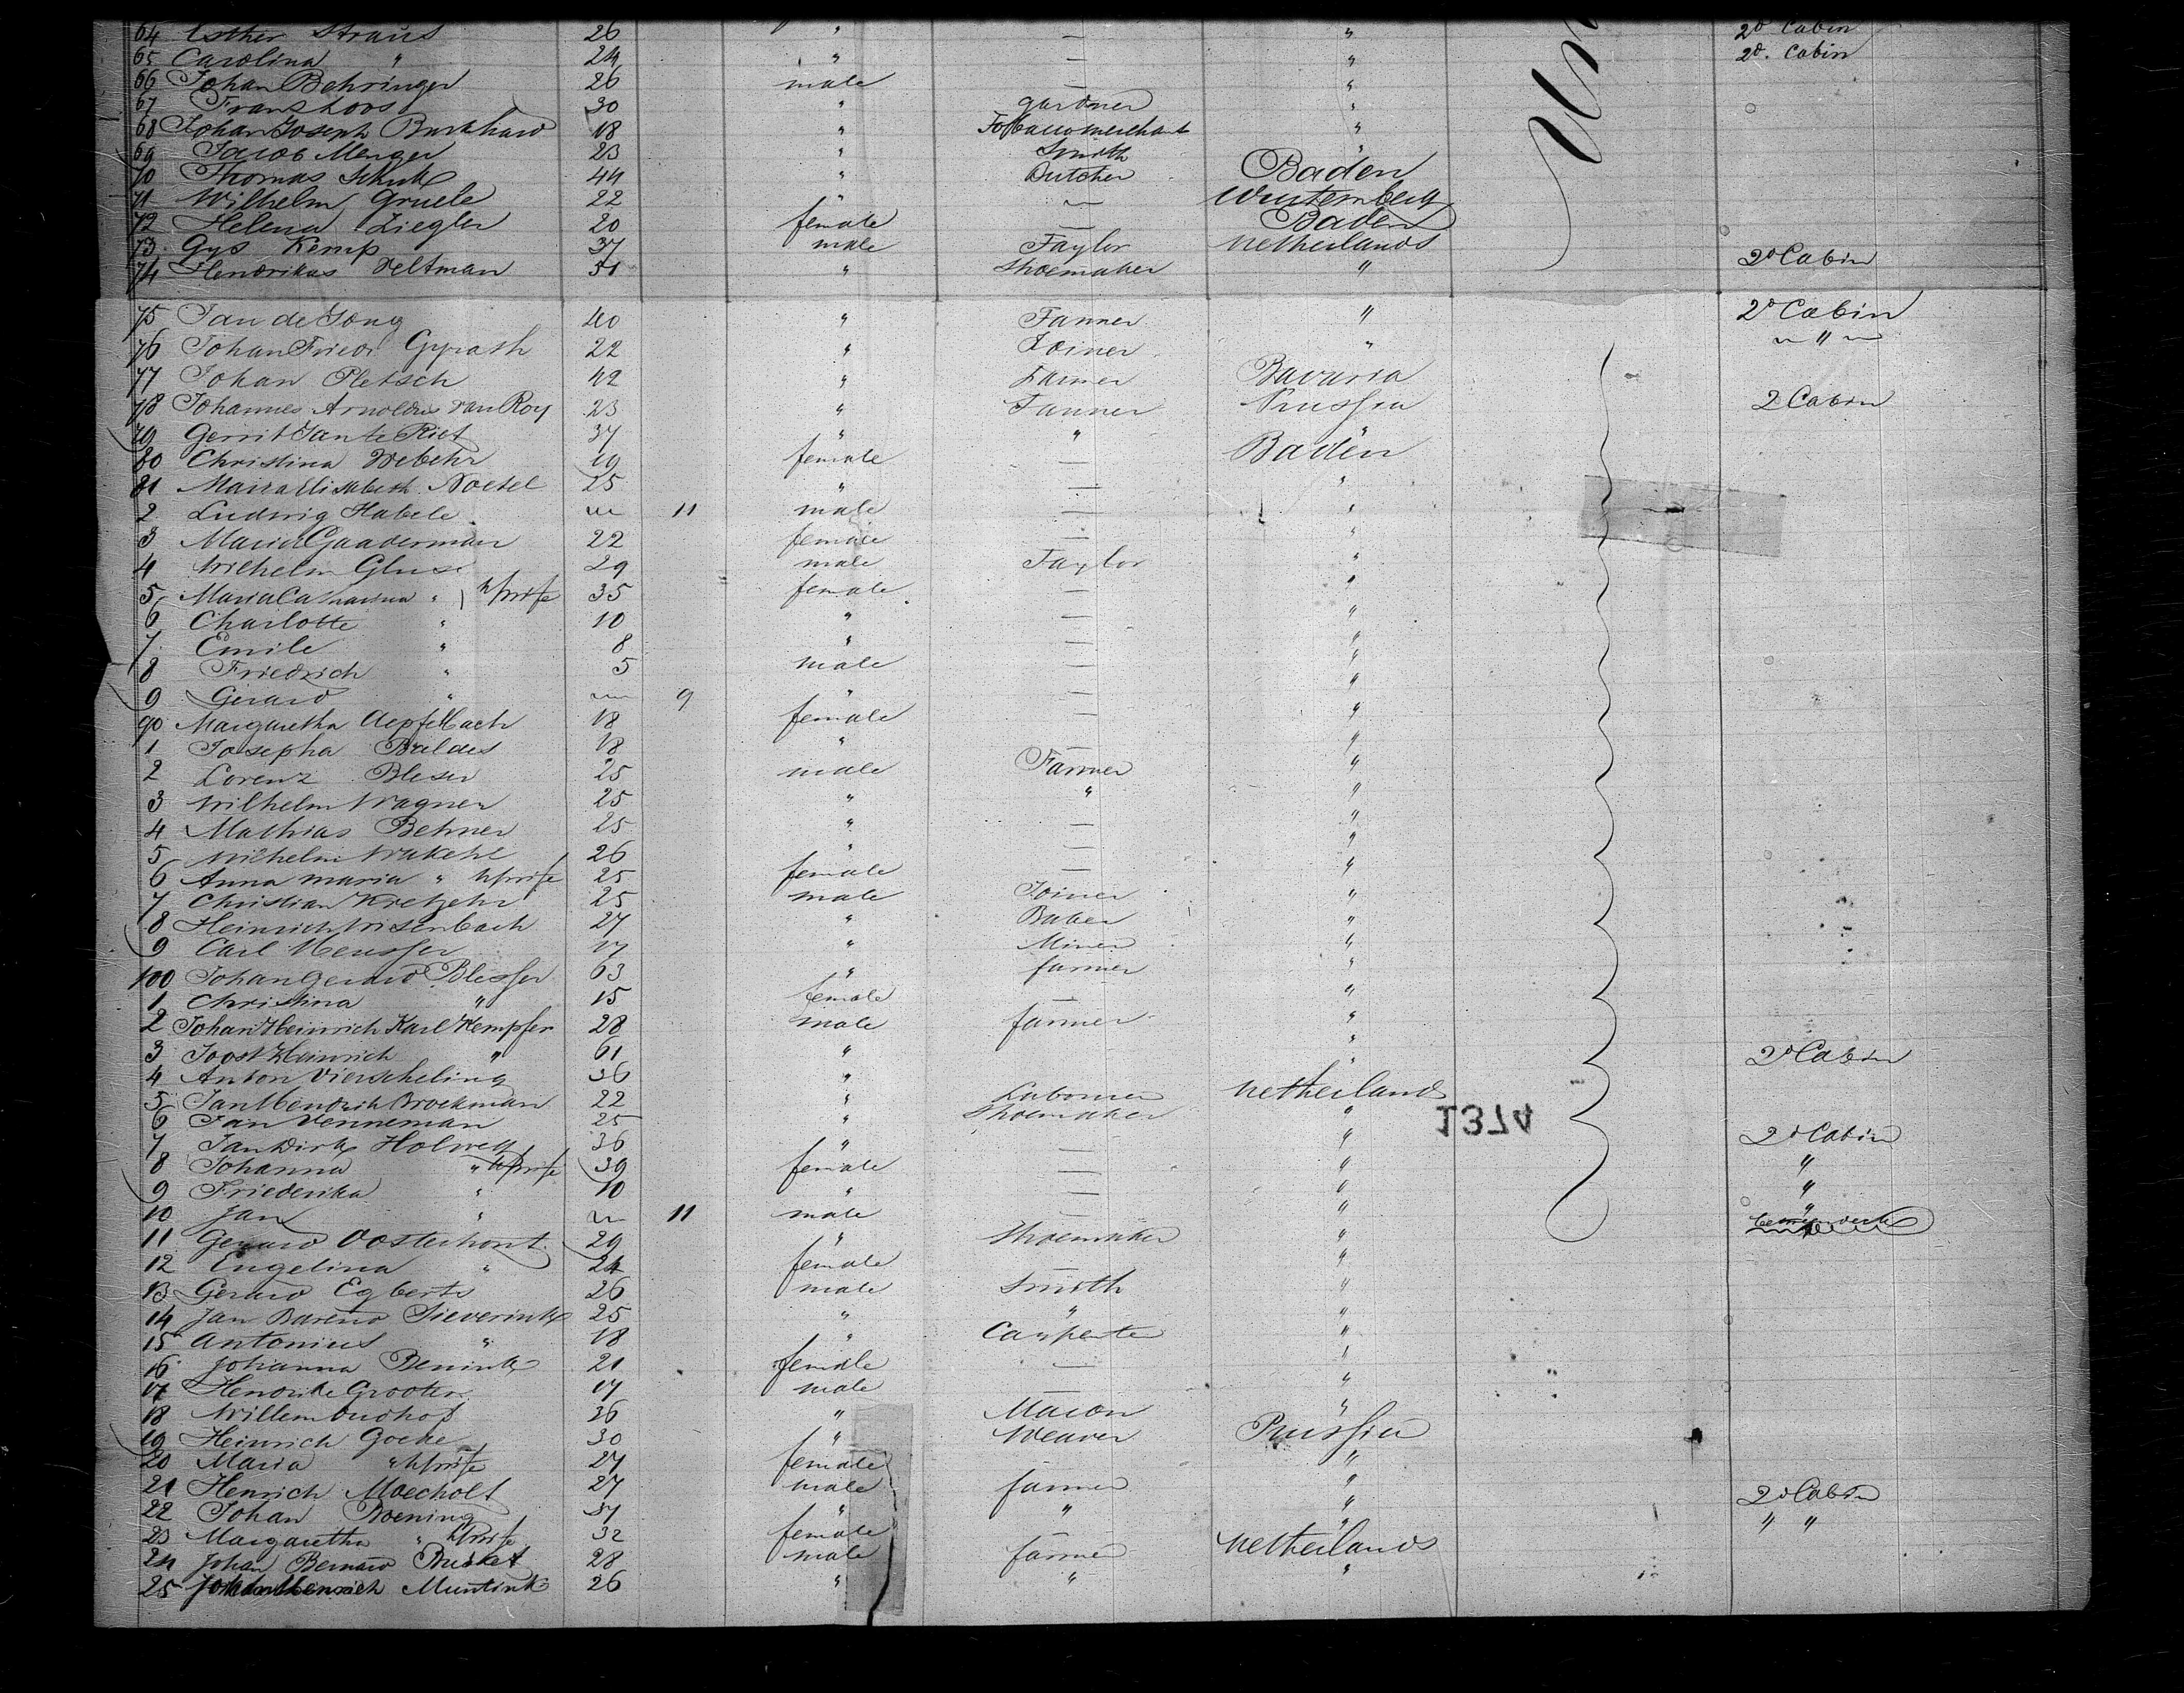 64 Esther Straus 26 " — " 2d Cabin
65 Carolina " 24 " — " 2d. Cabin
66 Johan Behringer 26 male — "
67 Frans Loos 30 " gardner "
68 Johan Joseph Burkhard 18 " Tobacco merchant "
69 Jacob Menger 23 " Smith "
70 Thomas Schutz 44 " Butcher Baden
71 Wilhelm Gruele 22 " — Wurtemberg
72 Helena Ziegler 20 female — Baden
73 Gys Kemp 37 male Taylor Netherlands
74 Hendrikus Veltman 51 " Shoemaker " 2d Cabin
75 Jan de Jong 40 " Farmer " 2d Cabin
76 Johan Friedr Gyrath 22 " Joiner " " "
77 Johan Pletsch 42 " Farmer Bavaria
78 Johannes Arnoldus van Roy 23 " Tanner Prussia 2 Cabin
79 Gerrit Jan te Riet 37 " " "
80 Christina Webehr 19 female — Baden
81 Maria Elisabeth Noetel 25 " — "
2 Ludwig Habele 11 male — "
3 Maria Gaaderman 22 female — "
4 Wilhelm Gluse 29 male Taylor "
5 Maria Catharina " h/wife 35 female — "
6 Charlotte " 10 " — "
7 Emile " 8 " — "
8 Friedrich " 5 male — "
9 Gerard " 9 " — "
90 Margaretha Aepfelbach 18 female — "
1 Josepha Baldes 18 " — "
2 Lorenz Bleser 25 male Farmer "
3 Wilhelm Wagner 25 " " "
4 Mathias Behner 25 " — "
5 Wilhelm Wakehl 26 " — "
6 Anna Maria " h/wife 25 female — "
7 Christian Kretzehr 25 male Joiner "
8 Heinrich Wisenbach 27 " Baker "
9 Carl Heusser 17 " Miner "
100 Johan Gerard Blesser 63 " farmer "
1 Christina " 15 female — "
2 Johan Heinrich Karl Kempfer 28 male farmer "
3 Joost Heinrich " 61 " " 2d Cabin
4 Anton Vierscheling 36 "
5 Jan Hendrik Broekman 22 " Labourer Netherland
6 Jan Venneman 25 " Shoemaker "
1374
7 Jan Dirk Holweg 36 " — " 2d Cabin
8 Johanna " h/wife 39 female — " "
9 Friederika " 10 " — " "
10 Jan " 11 male — " "
11 Gerard Oosterhout 29 " Shoemaker "
12 Engelina " 24 female — "
13 Gerard Egberts 26 male Smith "
14 Jan Barend Sieverink 25 " " "
15 Antonius " 18 " Carpenter "
16 Johanna Benink 21 female — "
17 Hendrik Grooters 17 male — "
18 Willem Oudhof 36 " Mason "
19 Heinrich Goeke 30 " Weaver Prussia
20 Maria " h/wife 27 female "
21 Henrich Moecholt 27 male farmer " 2d Cabin
22 Johan Boening 37 " " " " "
23 Margaretha " h/wife 32 female "
24 Johan Bernard Busket 28 male farmer Netherlands
25 Johan Henrich Muntink 26 " " "